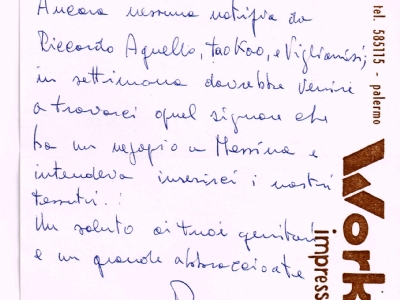 Ancora nessuna notizia da
Riccardo Aguello, TaoKao, e Viglianisi;
in settimana dovrebbe venire
a trovarci quel signore che
ha un negozio a Messina e
intendeva inserirci i nostri
tessuti.
Un saluto ai tuoi genitori
e un grande abbraccio a te
tel. 585115 - palermo
Work
impress